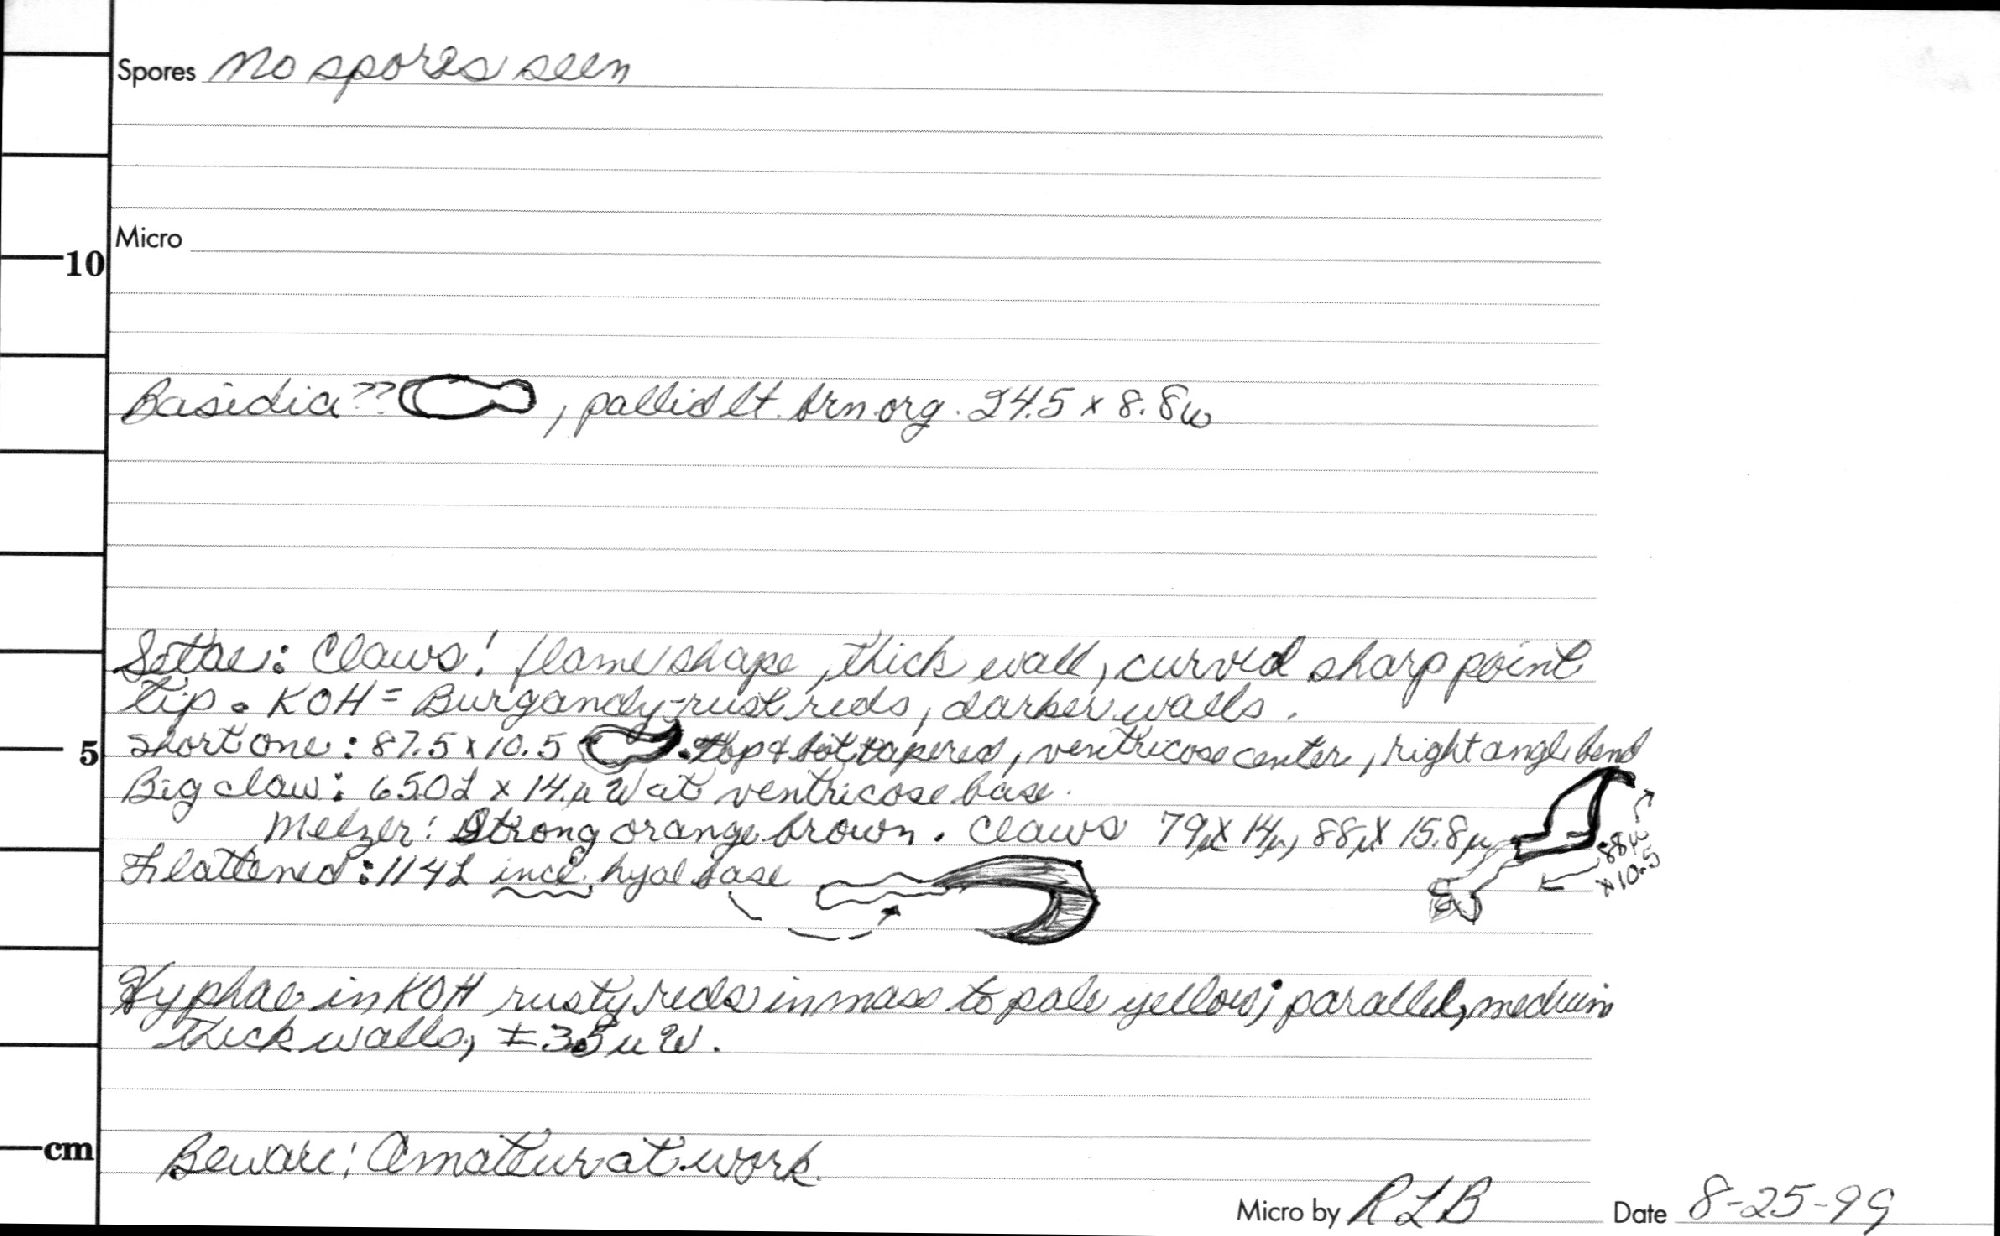 Spores No spores seen
Micro
10
Basidia??, pallid lt. brn org. 24.5 x 8.8w
Setae: Claws! flame shape, thick wall, curved sharp point
tip. KOH = Burgandy-rust reds, darker walls.
5
short one: 87.5 x 10.5 . top & bot tapered, ventricose center, right angle bend
Big claw: 65.0L x 14.µ W at ventricose base.
Melzer: Strong orange brown. Claws 79µ X 14µ, 88µ X 15.8µ
88µ
x 10.5
Flattened: 114L incl. hyal base
Hyphae in KOH rusty reds in mass to pale yellow; parallel, medium
thick walls, ±3.5µ W.
cm
Beware: Amateur at work.
Micro by RLB Date 8-25-99